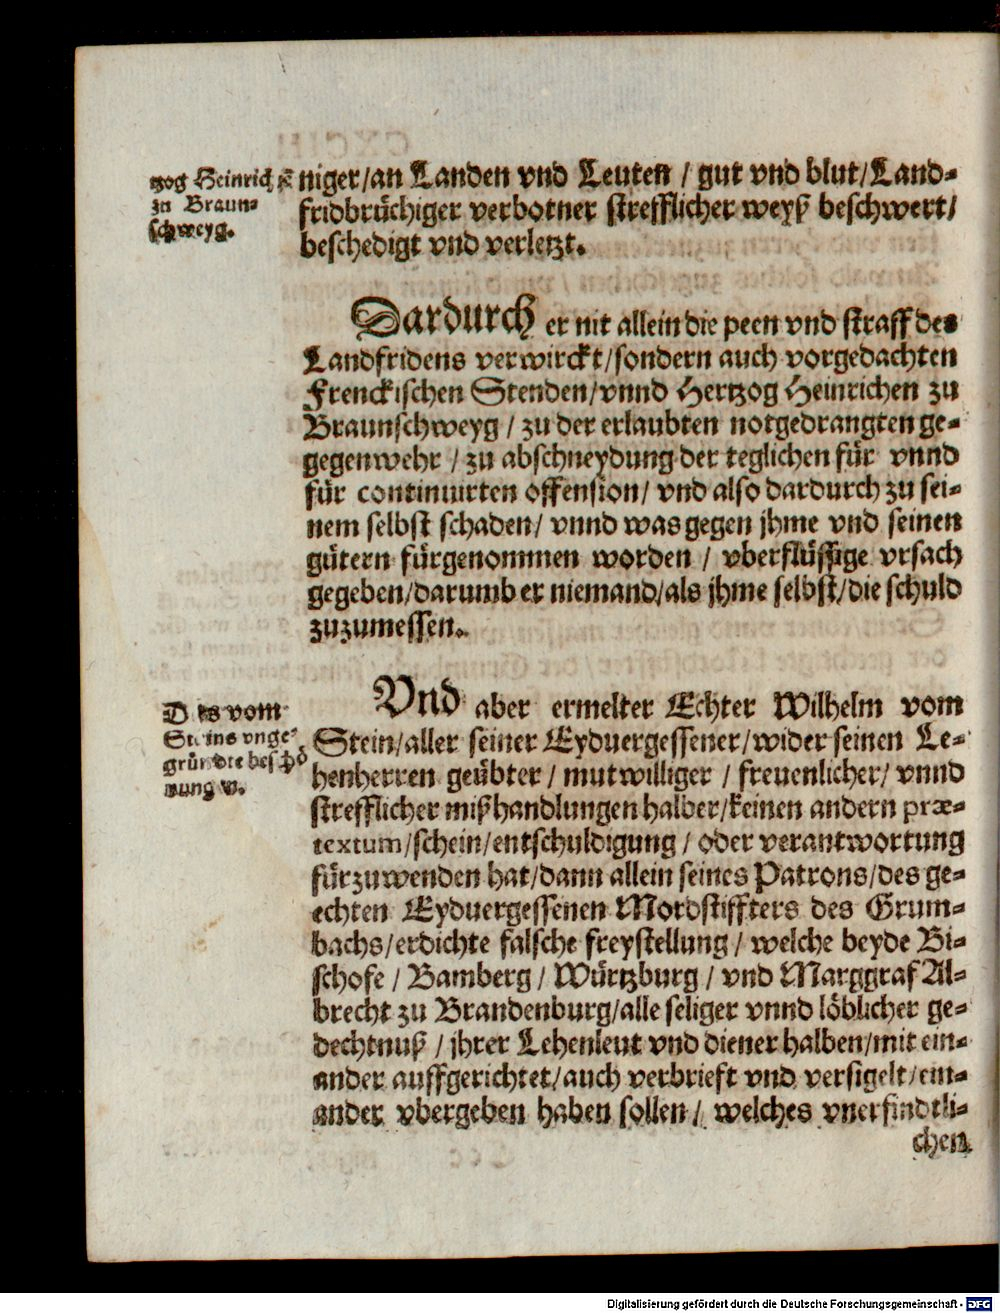 tzog Heinrich
zu Braun-
schweyg.
niger/an Landen vnd Leuten / gut vnd blut/Land-
fridbrüchiger verbotner strefflicher weyß beschwert/
beschedigt vnd verletzt.
Dardurch er nit allein die peen vnd straff des
Landfridens verwirckt/sondern auch vorgedachten
Frenckischen Stenden/vnnd Hertzog Heinrichen zu
Braunschweyg / zu der erlaubten notgedrangten ge-
gegenwehr / zu abschneydung der teglichen für vnnd
für continuirten offension/ vnd also dardurch zu sei-
nem selbst schaden/ vnnd was gegen jhme vnd seinen
gütern fürgenommen worden / vberflüssige vrsach
gegeben/darumb er niemand/als jhme selbst/die schuld
zuzumessen.
Des vom
Steins vnge-
gründte beschö
nung ꝛc.
Vnd aber ermelter Echter Wilhelm vom
Stein/aller seiner Eyduergessener/wider seinen Le-
henherren geübter / mutwilliger / freuenlicher/ vnnd
strefflicher mißhandlungen halber/keinen andern præ-
textum/schein/entschuldigung / oder verantwortung
fürzuwenden hat/dann allein seines Patrons/des ge-
echten Eyduergessenen Mordstiffters des Grum-
bachs/erdichte falsche freystellung / welche beyde Bi-
schofe / Bamberg / Würtzburg / vnd Marggraf Al-
brecht zu Brandenburg/alle seliger vnnd löblicher ge-
dechtnuß / jhrer Lehenleut vnd diener halben/mit ein-
ander auffgerichtet/auch verbrieft vnd versigelt/ein-
ander vbergeben haben sollen / welches vnerfindtli-
chen
Digitalisierung gefördert durch die Deutsche Forschungsgemeinschaft - DFG